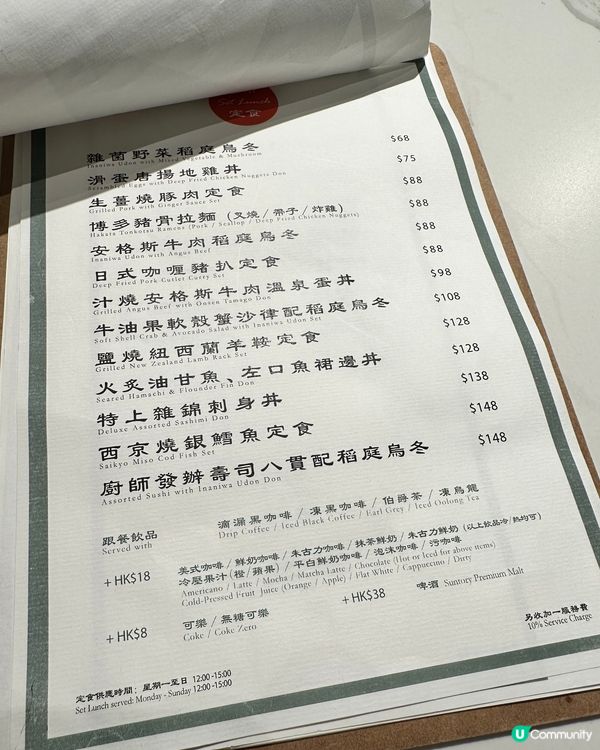 Set Lunch
定食
雜菌野菜稻庭烏冬 $68
Inaniwa Udon with Mixed Vegetable & Mushroom
滑蛋唐揚地雞丼 $75
Scrambled Eggs with Deep Fried Chicken Nuggets Don
生薑燒豚肉定食 $88
Grilled Pork with Ginger Sauce Set
博多豬骨拉麵 (叉燒 / 帶子 / 炸雞) $88
Hakata Tonkotsu Ramens (Pork / Scallop / Deep Fried Chicken Nuggets)
安格斯牛肉稻庭烏冬 $88
Inaniwa Udon with Angus Beef
日式咖喱豬扒定食 $88
Deep Fried Pork Cutlet Curry Set
汁燒安格斯牛肉溫泉蛋丼 $98
Grilled Angus Beef with Onsen Tamago Don
牛油果軟殼蟹沙律配稻庭烏冬 $108
Soft Shell Crab & Avocado Salad with Inaniwa Udon Set
鹽燒紐西蘭羊鞍定食 $128
Grilled New Zealand Lamb Rack Set
火炙油甘魚、左口魚裙邊丼 $128
Seared Hamachi & Flounder Fin Don
特上雜錦刺身丼 $138
Deluxe Assorted Sashimi Don
西京燒銀鱈魚定食 $148
Saikyo Miso Cod Fish Set
廚師發辦壽司八貫配稻庭烏冬 $148
Assorted Sushi with Inaniwa Udon Don
跟餐飲品 滴漏黑咖啡 / 凍黑咖啡 / 伯爵茶 / 凍烏龍
Served with Drip Coffee / Iced Black Coffee / Earl Grey / Iced Oolong Tea
+ HK$18 美式咖啡 / 鮮奶咖啡 / 朱古力咖啡 / 抹茶鮮奶 / 朱古力鮮奶 (以上飲品冷 / 熱均可)
冷壓果汁 (橙 / 蘋果) / 平白鮮奶咖啡 / 泡沫咖啡 / 污咖啡
Americano / Latte / Mocha / Matcha Latte / Chocolate (Hot or Iced for above items)
Cold-Pressed Fruit Juice (Orange / Apple) / Flat White / Cappuccino / Dirty
+ HK$8 可樂 / 無糖可樂 + HK$38 啤酒 Suntory Premium Malt
Coke / Coke Zero
另收加一服務費
10% Service Charge
定食供應時間：星期一至日 12:00 -15:00
Set Lunch served: Monday - Sunday 12:00 -15:00
U Community